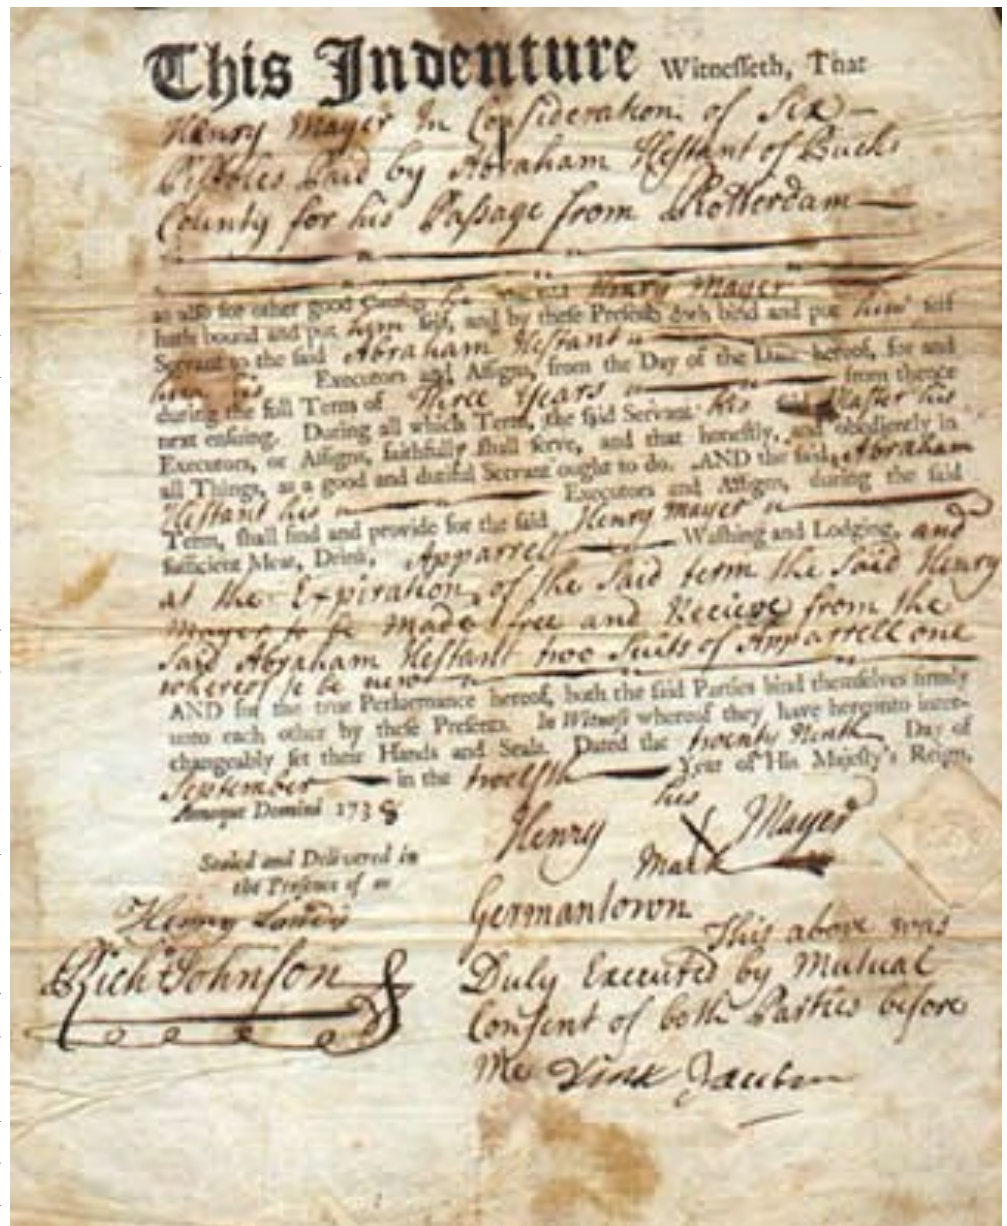 This Indenture Witnesseth, That
Henry Mayer In Consideration of Six
Pistoles Paid by Abraham Hestant of Bucks
County for his Passage from Rotterdam
as also for other good Causes, he the said Henry Mayer
hath bound and put him self, and by these Presents doth bind and put him self
Servant to the said Abraham Hestant
his Executors and Assigns, from the Day of the Date hereof, for and
during the full Term of Three Years from thence
next ensuing. During all which Term, the said Servant his said Master his
Executors, or Assigns, faithfully shall serve, and that honestly, and obediently in
all Things, as a good and dutiful Servant ought to do. AND the said Abraham
Hestant his Executors and Assigns, during the said
Term, shall find and provide for the said Henry Mayer
sufficient Meat, Drink, Apparrell Washing and Lodging, and
at the Expiration of the Said term the Said Henry
Mayer to be Made free and Recieve from the
Said Abraham Hestant two Suits of Apparrell one
whereof to be new
AND for the true Performance hereof, both the said Parties bind themselves firmly
unto each other by these Presents. In Witness whereof they have hereunto inter-
changeably set their Hands and Seals. Dated the twenty Ninth Day of
September in the twelfth Year of His Majesty's Reign,
Annoque Domini 1738
his
Henry Mayer
Mark
Sealed and Delivered in
the Presence of us
Henry
Rich Johnson
Germantown
This above was
Duly Executed by Mutual
Consent of both Parties before
Me